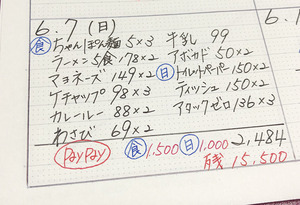 6.7(日)
食 ちゃんぽん麺 5×3
ラーメン5食 178×2
マヨネーズ 149×2
ケチャップ 98×3
カレールー 88×2
わさび 69×2
牛乳 99
アボカド 50×2
日 トイレットペーパー 150×2
ティッシュ 150×2
アタックゼロ 136×3
PayPay 食 1,500 日 1,000 2,484
残 15,500